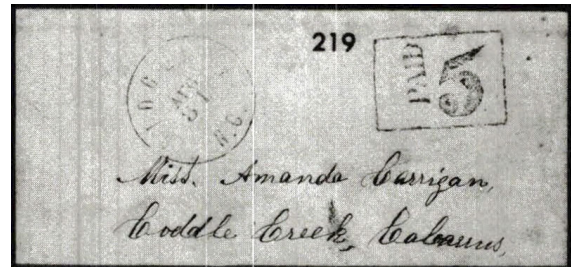 219
PAID 5
AUG 31
N.C.
Miss. Amanda Carrigan,
Coddle Creek, Cabarrus,